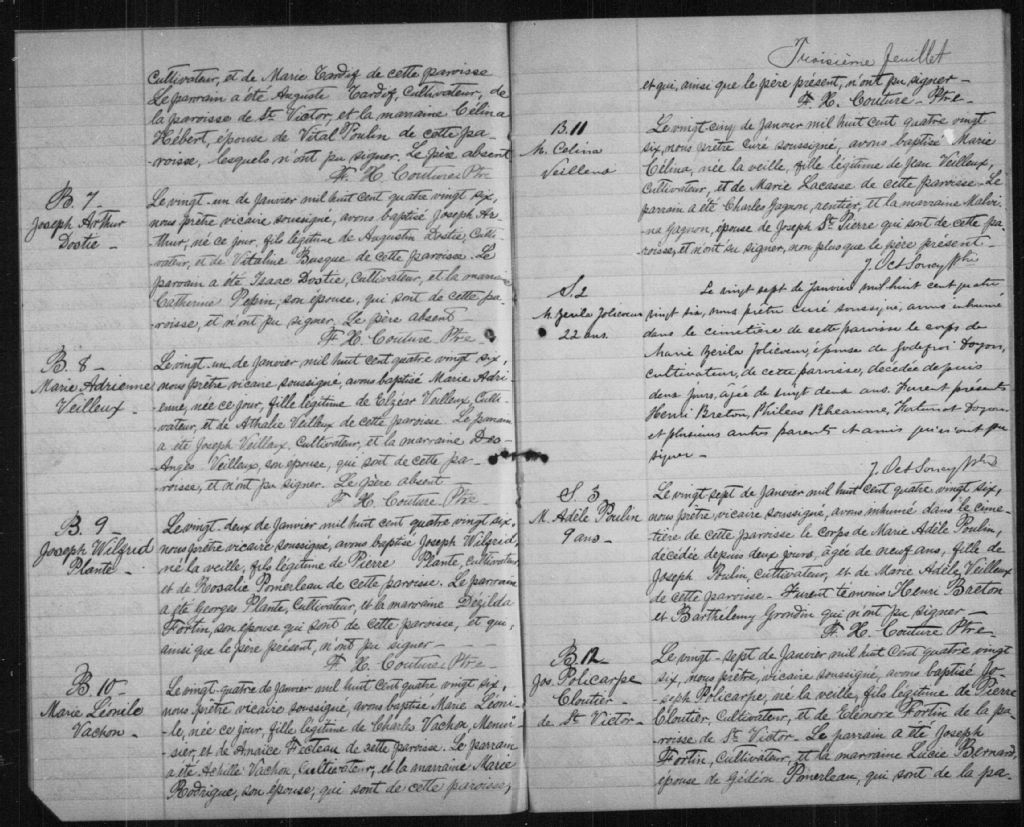 cultivateur, et de Marie Tardif de cette paroisse
Le parrain a été Auguste Tardif, Cultivateur, de
la paroisse de St. Victor, et la marraine Célina
Hébert, épouse de Vital Poulin de cette pa-
roisse, lesquels n'ont pu signer. Le père absent
F. X. Couture Ptre
B. 7
Joseph Arthur
Dostie
Le vingt-un de Janvier mil huit cent quatre vingt six,
nous prêtre vicaire soussigné, avons baptisé Joseph Ar-
thur, né ce jour, fils légitime de Augustin Dostie, Culti-
vateur, et de Vitaline Busque de cette paroisse. Le
parrain a été Isaac Dostie, Cultivateur, et la marraine
Catherine Pepin, son épouse, qui sont de cette pa-
roisse, et n'ont pu signer. Le père absent
F. X. Couture Ptre
B. 8
Marie Adrienne
Veilleux
Le vingt-un de Janvier mil huit cent quatre vingt six,
nous prêtre vicaire, soussigné, avons baptisé Marie Adri-
enne, née ce jour, fille légitime de Elzéar Veilleux, Culti-
vateur, et de Athalie Veilleux de cette paroisse Le parrain
a été Joseph Veilleux, Cultivateur, et la marraine Des-
Anges Veilleux, son épouse, qui sont de cette pa-
roisse, et n'ont pu signer. Le père absent
F. X. Couture Ptre
B. 9
Joseph Wilfrid
Plante
Le vingt-deux de Janvier mil huit cent quatre vingt six,
nous prêtre, vicaire soussigné, avons baptisé Joseph Wilfrid,
né la veille, fils légitime de Pierre Plante, Cultivateur
et de Rosalie Pomerleau de cette paroisse. Le parrain
a été Georges Plante, Cultivateur, et la marraine Dézilda
Fortin, son épouse qui sont de cette paroisse, et qui,
ainsi que le père présent, n'ont pu signer
F. X. Couture Ptre
B. 10
Marie Léonile
Vachon
Le vingt-quatre de Janvier mil huit cent quatre vingt six,
nous prêtre vicaire soussigné, avons baptisé Marie Léoni-
le, née ce jour, fille légitime de Charles Vachon, Menui-
sier, et de Anaïce Fecteau de cette paroisse. Le parrain
a été Achille Vachon, Cultivateur, et la marraine Marie
Rodrigue, son épouse, qui sont de cette paroisse,
Troisième feuillet
et qui, ainsi que le père présent, n'ont pu signer
F. X. Couture Ptre
B. 11
M. Celina
Veilleux
Le vingt cinq de Janvier mil huit cent quatre vingt
six, nous prêtre curé soussigné, avons baptisé Marie
Célina, née la veille, fille légitime de Jean Veilleux,
Cultivateur, et de Marie Lacasse de cette paroisse. Le
parrain a été Charles Gagnon, rentier, et la marraine
Gagnon, épouse de Joseph St. Pierre qui sont de cette pa-
roisse, et n'ont su signer, non plus que le père présent
J. Oct Soucy Ptre
S. 2
M. Zerila Jolicoeur
22 ans.
Le vingt sept de Janvier mil huit cent quatre
vingt six, nous prêtre curé soussigné, avons inhumé
dans le cimetière de cette paroisse le corps de
Marie Zerila Jolicoeur, épouse de Godefroi Doyon,
cultivateur, de cette paroisse, décédée depuis
deux jours, âgée de vingt deux ans. Furent présents
Henri Breton, Philéas Rheaume, Fortunat Doyon
et plusieurs autres parents et amis qui n'ont pu
signer
J. Oct Soucy Ptre
S. 3
M. Adèle Poulin
9 ans
Le vingt sept de Janvier mil huit cent quatre vingt six,
nous prêtre, vicaire soussigné, avons inhumé dans le cime-
tière de cette paroisse le corps de Marie Adèle Poulin,
décédée depuis deux jours, âgée de neuf ans, fille de
Joseph Poulin, cultivateur, et de Marie Adèle Veilleux
de cette paroisse. Furent témoins Henri Breton
et Barthélemy Grondin qui n'ont pu signer
F. X. Couture Ptre
B. 12
Jos. Policarpe
Cloutier
de St. Victor
Le vingt-sept de Janvier mil huit cent quatre vingt
six, nous prêtre, vicaire soussigné, avons baptisé Jo-
seph Policarpe, né la veille, fils légitime de Pierre
Cloutier, Cultivateur, et de Edénore Fortin de la pa-
roisse de St. Victor. Le parrain a été Joseph
Fortin, Cultivateur, et la marraine Lucie Bernard,
épouse de Gédéon Pomerleau, qui sont de la pa-